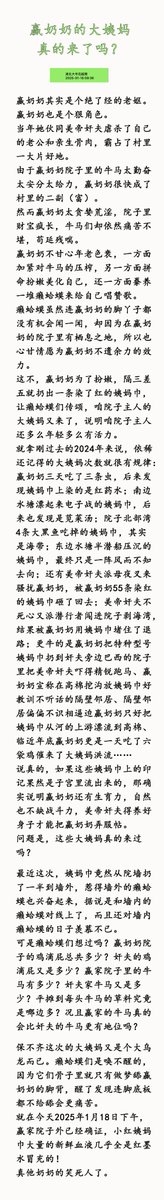 嬴奶奶的大姨妈
真的来了吗？
2025-01-18 09:08
嬴奶奶其实是个绝了经的老妪。
嬴奶奶也是个狠角色。
当年她伙同美帝奸夫虐杀了自己
的老公和亲生骨肉，霸占了村里
一大片好地。
由于嬴奶奶院子里的牛马太勤奋
太安分太给力，嬴奶奶很快成了
村里的二副（富）。
然而嬴奶奶太贪婪荒淫，院子里
财宝疯长，牛马们却依然痛苦不
堪，苟延残喘。
嬴奶奶不甘心年老色衰，一方面
加紧对牛马的压榨，另一方面拼
命扮嫩美化自己，还一方面豢养
一堆癞蛤蟆来给自己唱赞歌。
癞蛤蟆虽然连嬴奶奶的脚丫子都
没有机会闻一闻，却因为在嬴奶
奶的院子里有栖息之地，所以也
心甘情愿为嬴奶奶不遗余力的效
力。
这不，嬴奶奶为了扮嫩，隔三差
五就扔出一条染了红的姨妈巾，
让癞蛤蟆们传颂，咱院子主人的
大姨妈又来了，说明咱院子主人
还多么年轻多么有活力。
就拿刚过去的2024年来说，依稀
还记得的大姨妈次数就很有规律：
嬴奶奶三天吃了三条虫，后来发
现姨妈巾上染的是红药水；南边
水塘漂起来电子战的姨妈巾，后
来也发现是苋菜汤；院子北部湾
4条大黑鱼吃掉的姨妈巾，其实
是海带；东边水塘半潜船压沉的
姨妈巾，最终只是一阵风而不知
去向；还有美帝奸夫派母夜叉来
骚扰嬴奶奶，被嬴奶奶55条染红
的姨妈巾砸了回去；美帝奸夫不
死心又派潜行者闯进院子到海湾，
结果被嬴奶奶用姨妈巾堵住了退
路；更牛的是嬴奶奶把特种型号
姨妈巾扔到奸夫旁边巴西的院子
里把美帝奸夫吓得稍锐跑马、嬴
奶奶宣称在高梯挖沟放姨妈巾好
教训不听话的隔壁邻居、隔壁邻
居偏偏不识相逼迫嬴奶奶只好把
姨妈巾从河的上游漂流到高梯、
临近年底嬴奶奶更是一天吃了六
袋鸡催来了大姨妈洪流……
说真的，如果这些姨妈巾上的印
记果然是子宫里流出来的，那确
实说明嬴奶奶还有生育力，自然
也不缺战斗力，美帝奸夫得养好
身子才能把嬴奶奶弄服帖。
问题是，这些大姨妈真的来过
吗？
最近这次，姨妈巾竟然从院墙扔
了一半到墙外，惹得墙外的癞蛤
蟆也兴奋起来，据说是和墙内的
癞蛤蟆对线上了，而且还对墙内
癞蛤蟆的日子羡慕不已。
可是癞蛤蟆们想过吗？嬴奶奶院
子的鸡滴屁总共多少？奸夫的鸡
滴屁又是多少？嬴家院子里的牛
马有多少？奸夫家牛马又是多
少？平摊到每头牛马的草料究竟
是哪边多？况且嬴家的牛马真的
会比奸夫的牛马更有地位吗？
保不齐这次的大姨妈又是个大乌
龙而已。癞蛤蟆们是唤不醒的，
因为它们骨子里就只有做梦舔嬴
奶奶的脚背，醒了发现连脚底板
都不给舔会更痛苦。
就在今天2025年1月18日下午，
嬴家院子外已经确证，小红姨妈
巾大量的新鲜血液几乎全是红墨
水冒充的！
真他奶奶的笑死人了。